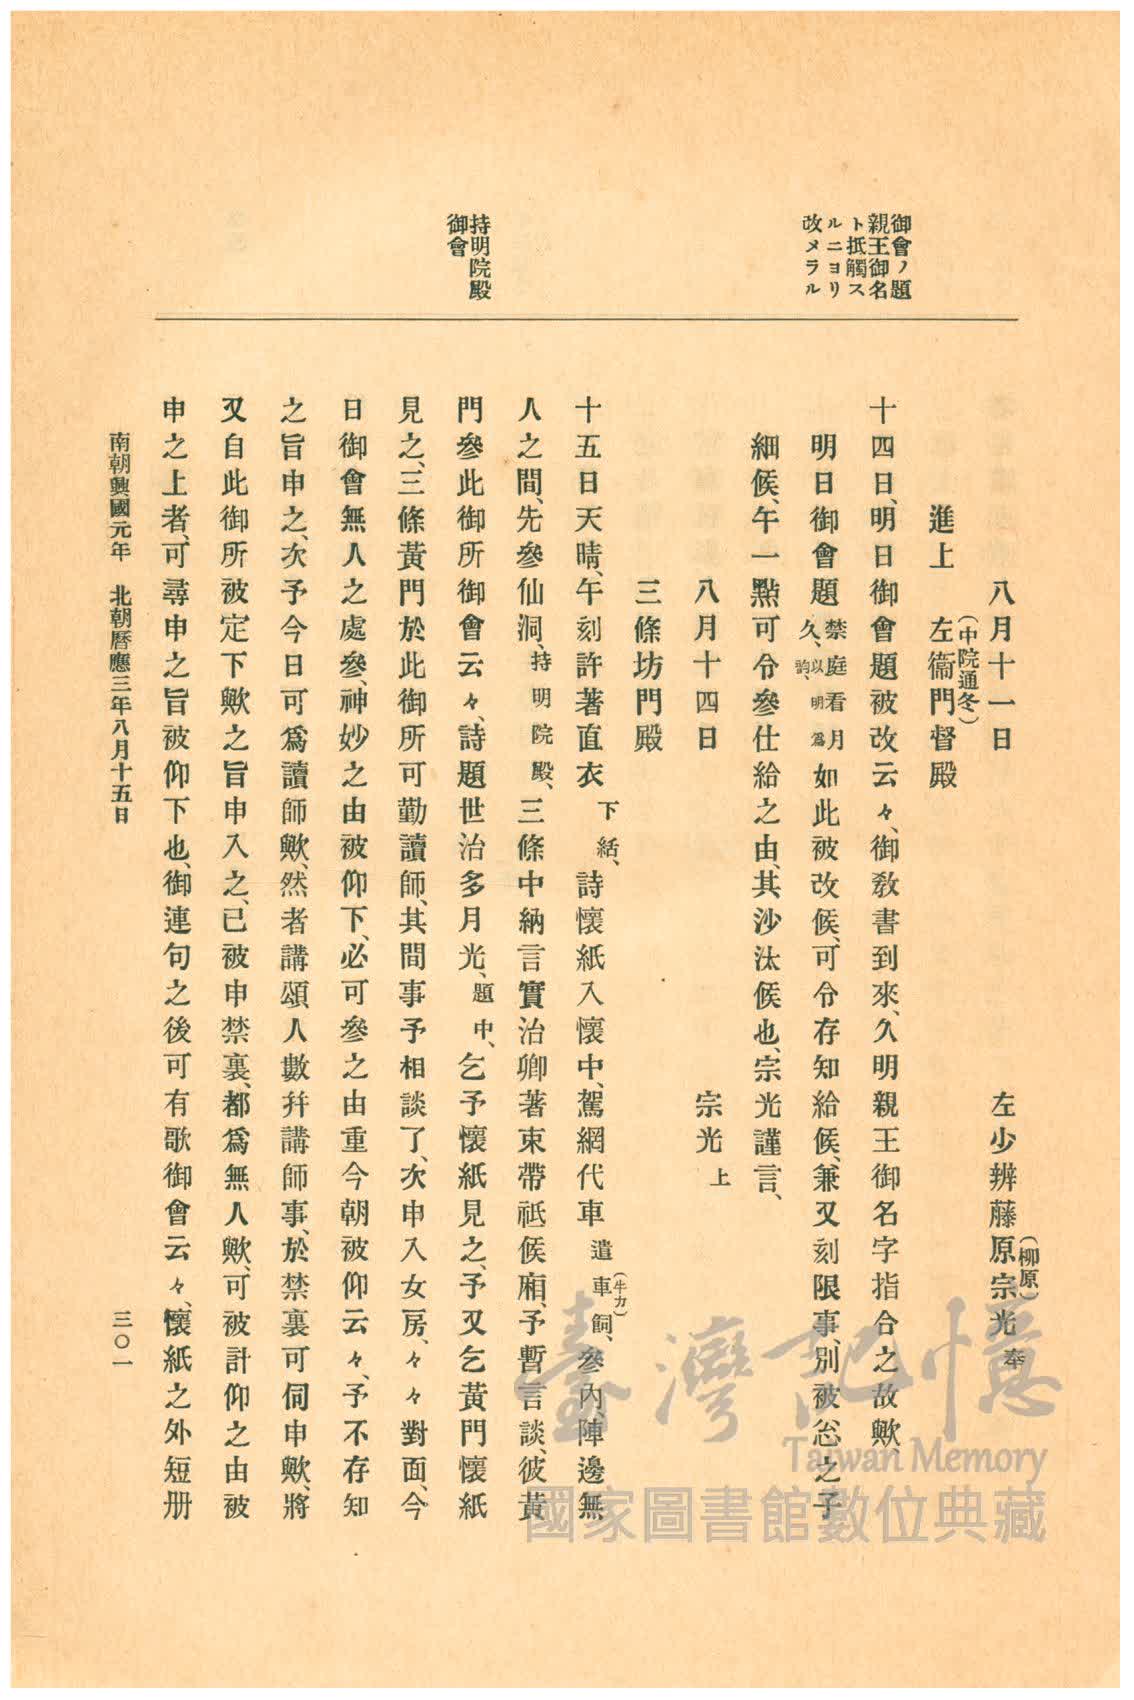 御會ノ題
親王御名
ト抵觸ス
ルニヨリ
改メラル
持明院殿
御會
八月十一日　左少辨藤原宗光奉
(柳原)
進上　左衞門督殿
(中院通冬)
十四日、明日御會題被改云々、御敎書到來、久明親王御名字指合之故歟、
明日御會題禁庭看月久、以明爲韵、如此被改候、可令存知給候、兼又刻限事、別被忩之子
細候、午一點可令參仕給之由、其沙汰候也、宗光謹言、
八月十四日　宗光上
三條坊門殿
十五日天晴、午刻許著直衣下結、詩懷紙入懷中、駕網代車遣車飼、參內陣邊無
(牛カ)
人之間、先參仙洞、持明院殿、三條中納言實治卿著束帶祗候廂、予暫言談、彼黃
門參此御所御會云々、詩題世治多月光、題中、乞予懷紙見之、予又乞黃門懷紙
見之、三條黃門於此御所可勤讀師、其間事予相談了、次申入女房、々々對面、今
日御會無人之處參、神妙之由被仰下、必可參之由重今朝被仰云々、予不存知
之旨申之、次予今日可爲讀師歟、然者講頌人數幷講師事、於禁裏可伺申歟、將
又自此御所被定下歟之旨申入之、已被申禁裏、都爲無人歟、可被計仰之由被
申之上者、可尋申之旨被仰下也、御連句之後可有歌御會云々、懷紙之外短册
南朝興國元年　北朝曆應三年八月十五日　三〇一
臺灣記憶
Taiwan Memory
國家圖書館數位典藏